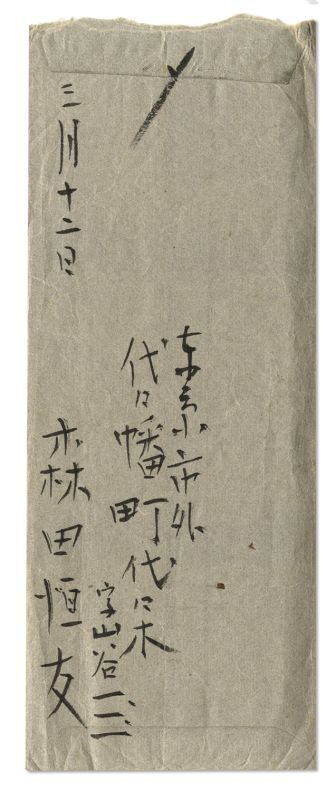 東京市外
代々幡町代々木
字山谷一三一
森田恒友
三月十二日